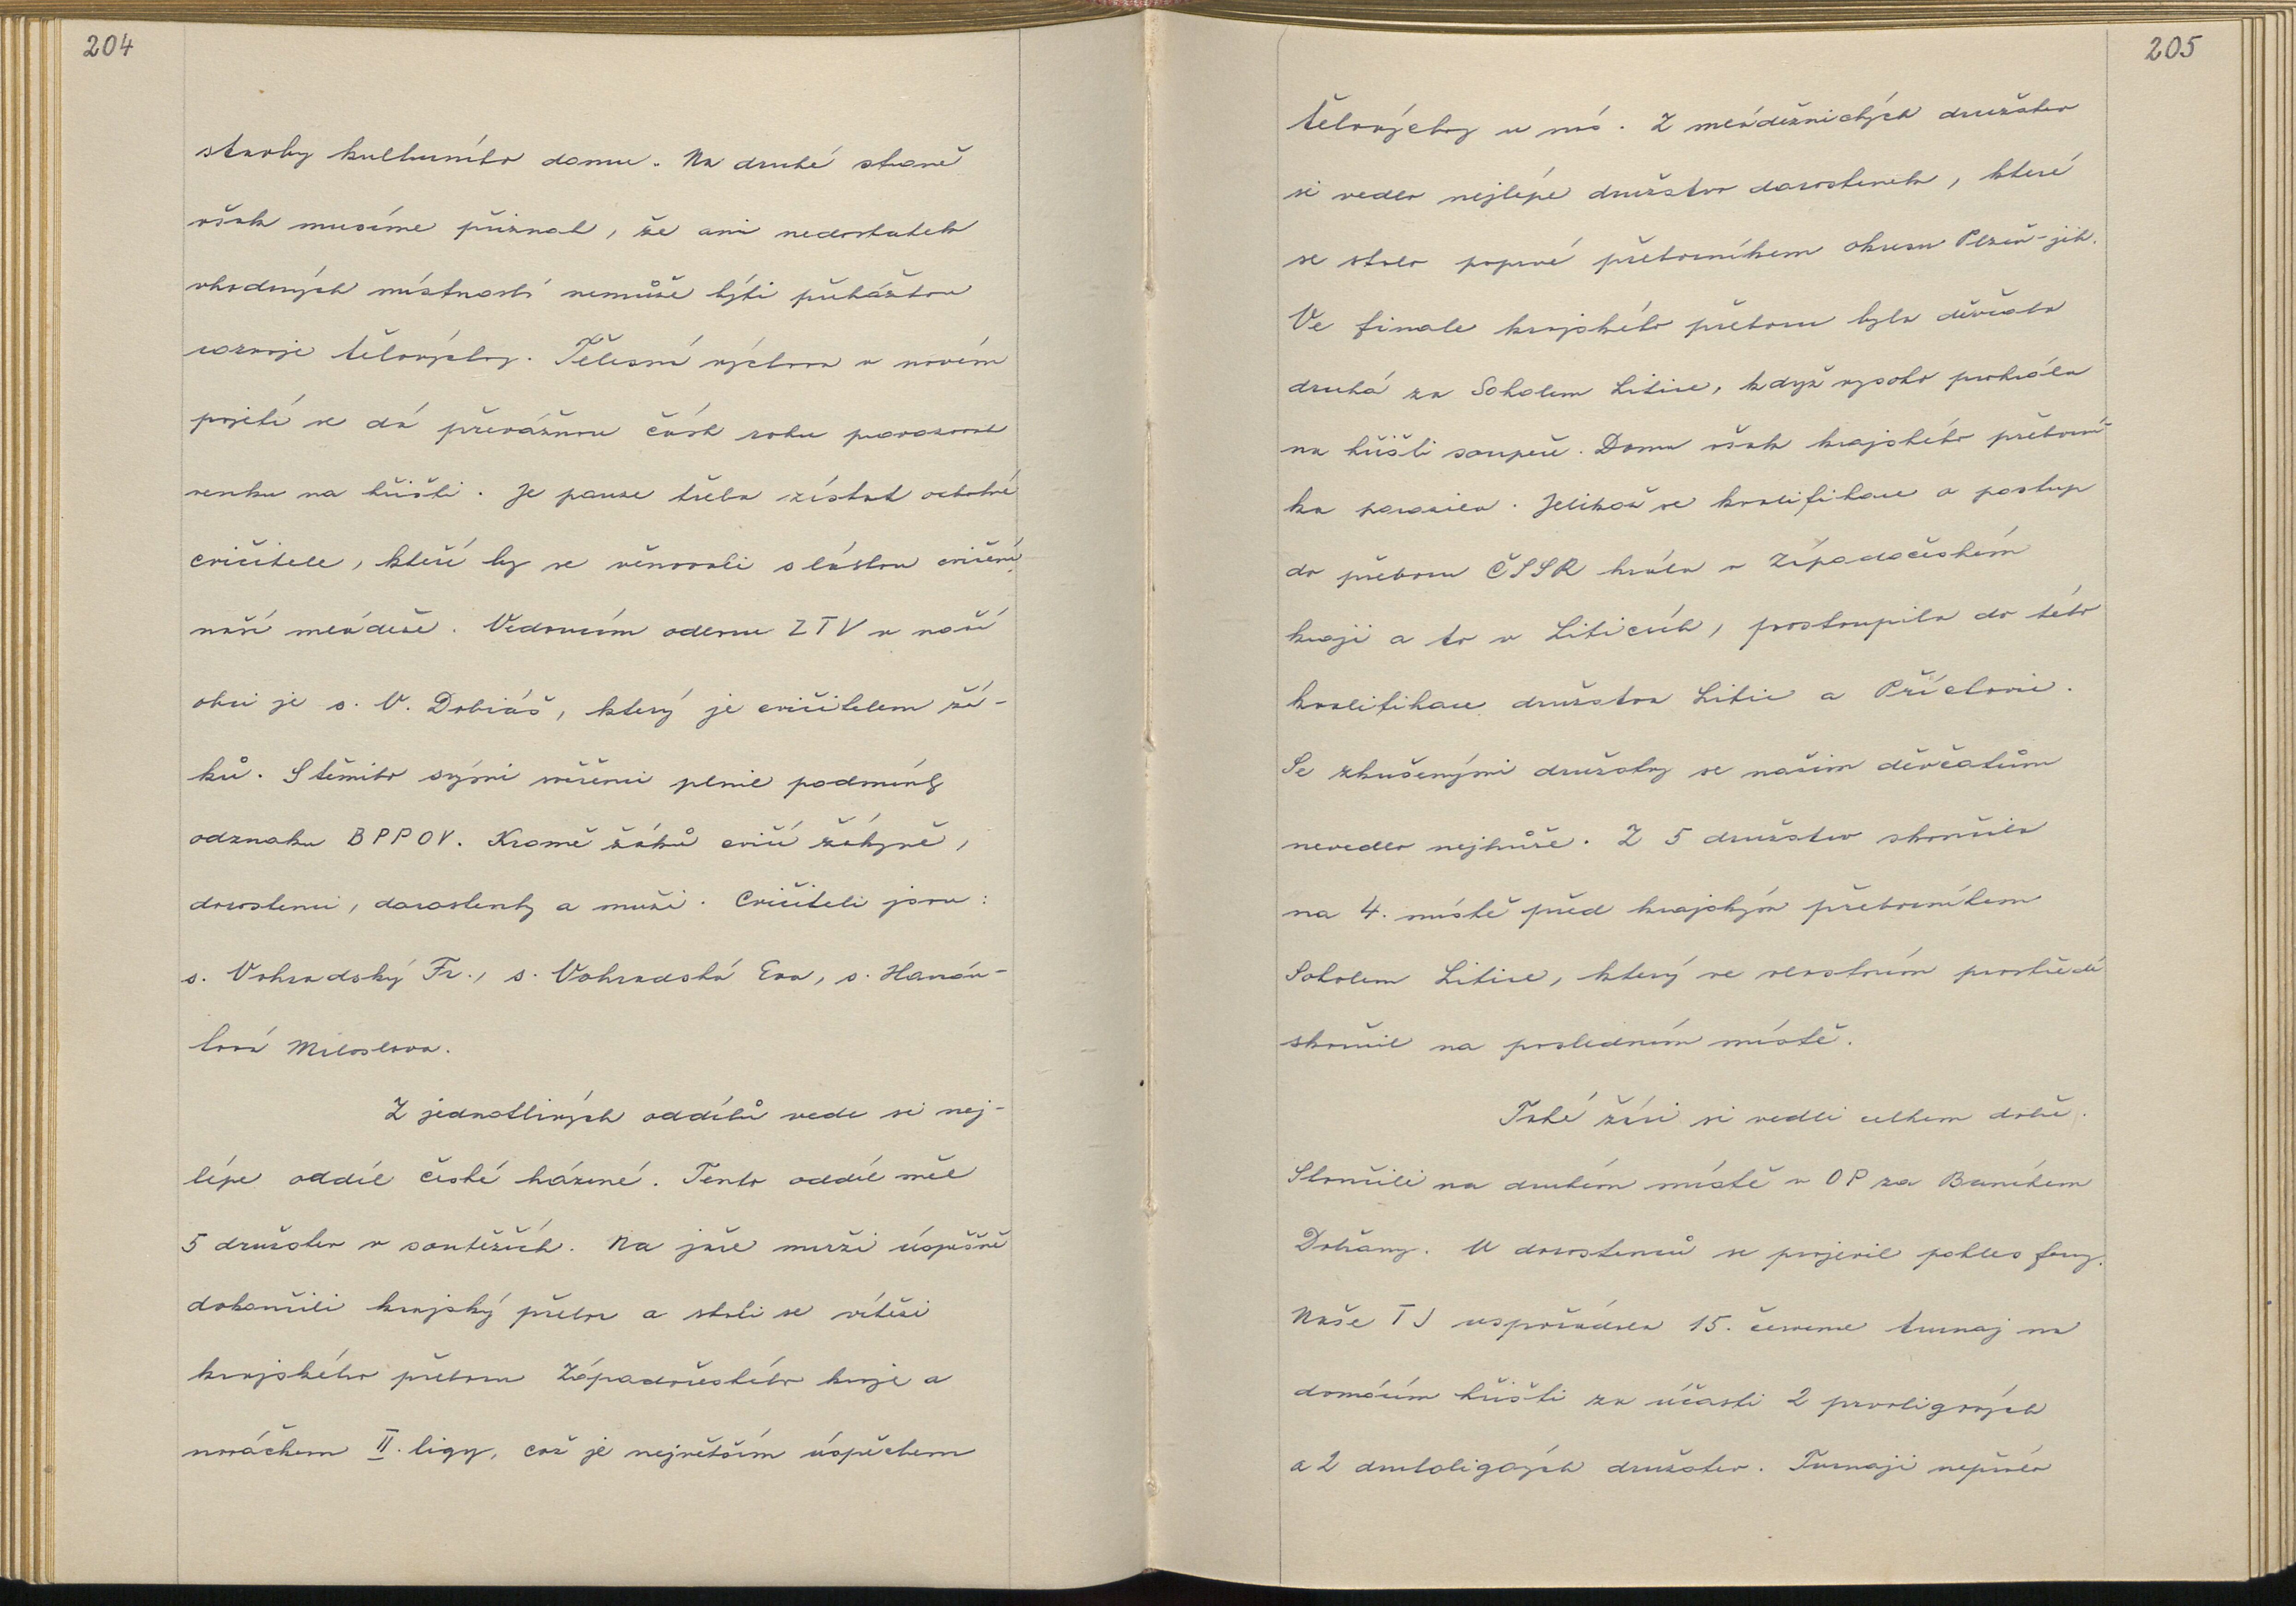 204
stavby kulturního domu. Na druhé straně
však musíme přiznat, že ani nedostatek
vhodných místností nemůže býti překážkou
rozvoje tělovýchovy. Tělesná výchova v novém
pojetí se dá převážnou část roku provozovat
venku na hřišti. Je pouze třeba získat ochotné
cvičitele, kteří by se věnovali s láskou cvičení
naší mládeže. Vedoucím odboru ZTV v naší
obci je s. V. Dobiáš, který je cvičitelem žá-
ků. S těmito svými svěřenci plnil podmínky
odznaku BPPOV. Kromě žáků cvičí žákyně,
dorostenci, dorostenky a muži. Cvičiteli jsou:
s. Vohradský Fr., s. Vohradská Eva, s. Hanán-
lová Miloslava.
Z jednotlivých oddílů vede si nej-
lépe oddíl české házené. Tento oddíl měl
5 družstev v soutěžích. Na jaře muži úspěšně
dokončili krajský přebor a stali se vítězi
krajského přeboru Západočeského kraje a
nováčkem II. ligy, což je největším úspěchem
205
tělovýchovy u nás. Z mládežnických družstev
si vedlo nejlépe družstvo dorostenek, které
se stalo poprvé přeborníkem okresu Plzeň-jih.
Ve finale krajského přeboru byla děvčata
druhá za Sokolem Litice, když vysoko prohrála
na hřišti soupeře. Doma však krajského přeborní-
ka porazila. Jelikož se kvalifikace o postup
do přeboru ČSSR hrála v Západočeském
kraji a to v Liticích, postoupila do této
kvalifikace družstva Litic a Příchovic.
Se zkušenými družstvy se našim děvčatům
nevedlo nejhůře. Z 5 družstev skončila
na 4. místě před krajským přeborníkem
Sokolem Litice, který ve vlastním prostředí
skončil na posledním místě.
Také žáci si vedli celkem dobře.
Skončili na druhém místě v OP za Baníkem
Dobřany. U dorostenců se projevil pokles formy.
Naše TJ uspořádala 15. června turnaj na
domácím hřišti za účasti 2 prvoligových
a 2 druholigových družstev. Turnaji nepřálo